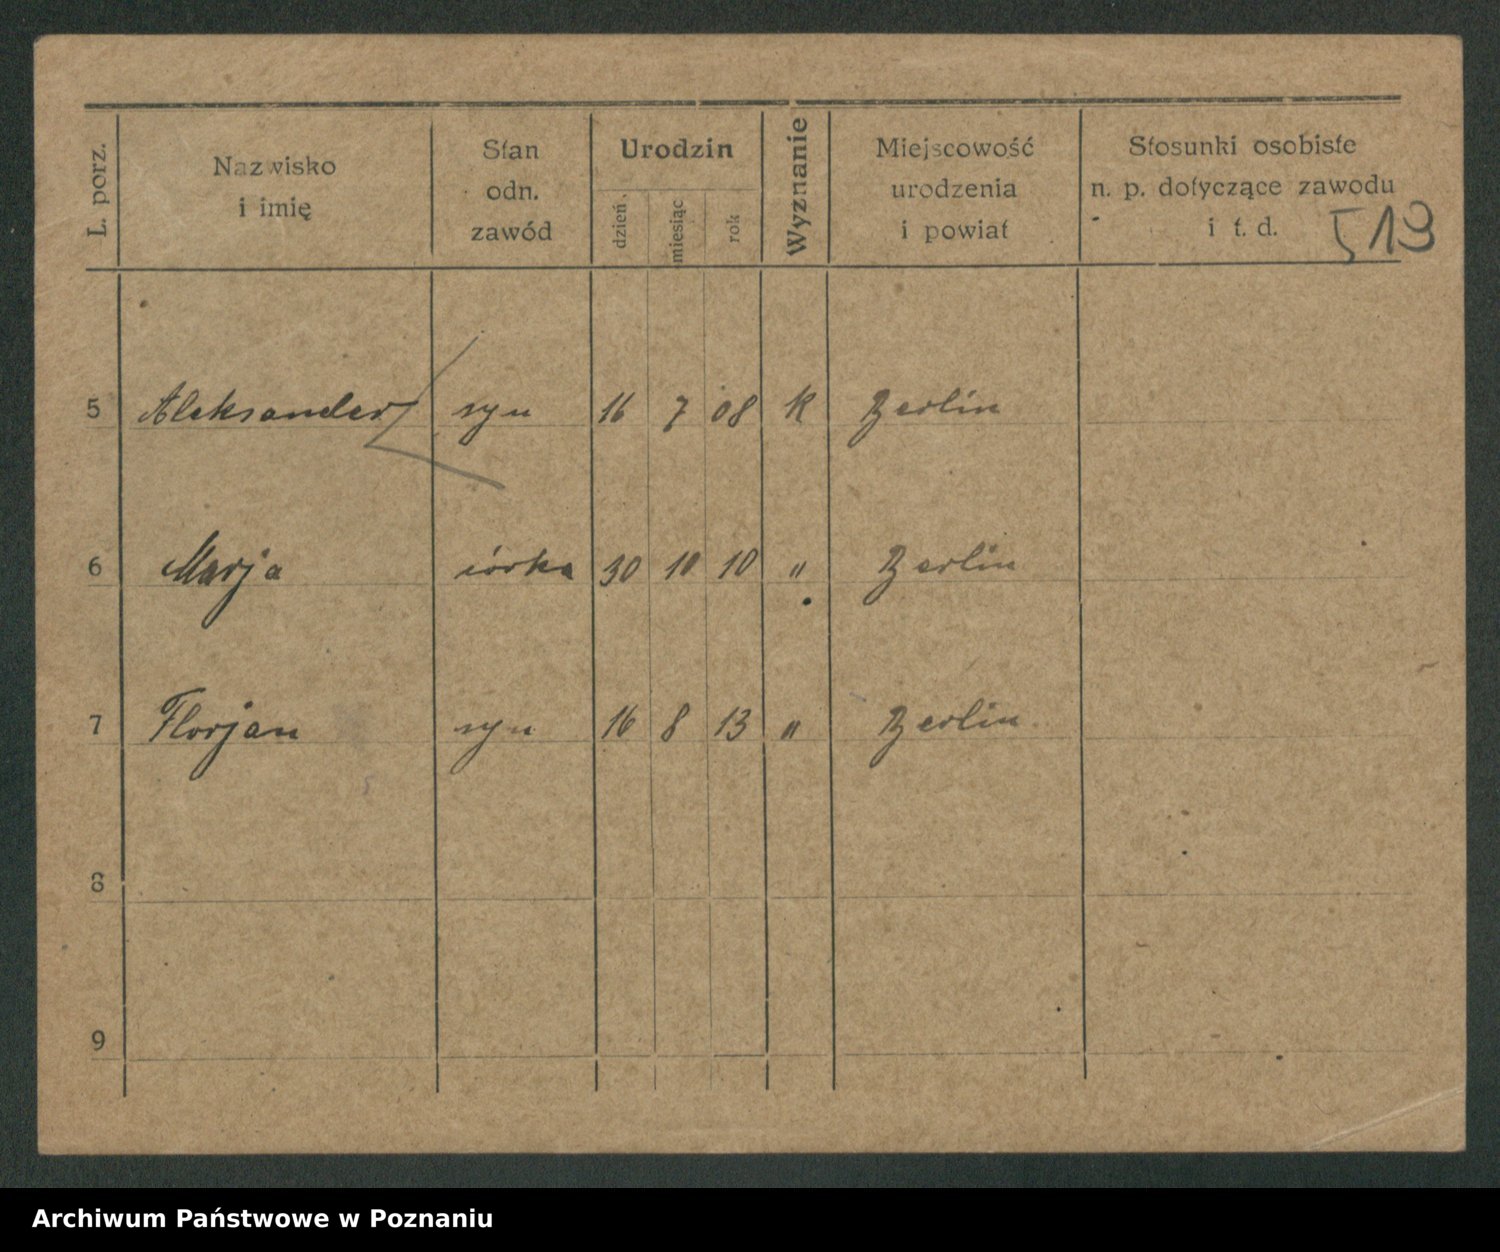 L. porz.
Nazwisko
i imię
Stan
odn.
zawód
Urodzin
dzień
miesiąc
rok
Wyznanie
Miejscowość
urodzenia
i powiat
Stosunki osobiste
n. p. dotyczące zawodu
i t. d.
513
5 Aleksander syn 16 7 08 k Berlin
6 Marja córka 30 10 10 " Berlin
7 Florjan syn 16 8 13 " Berlin
8
9
Archiwum Państwowe w Poznaniu